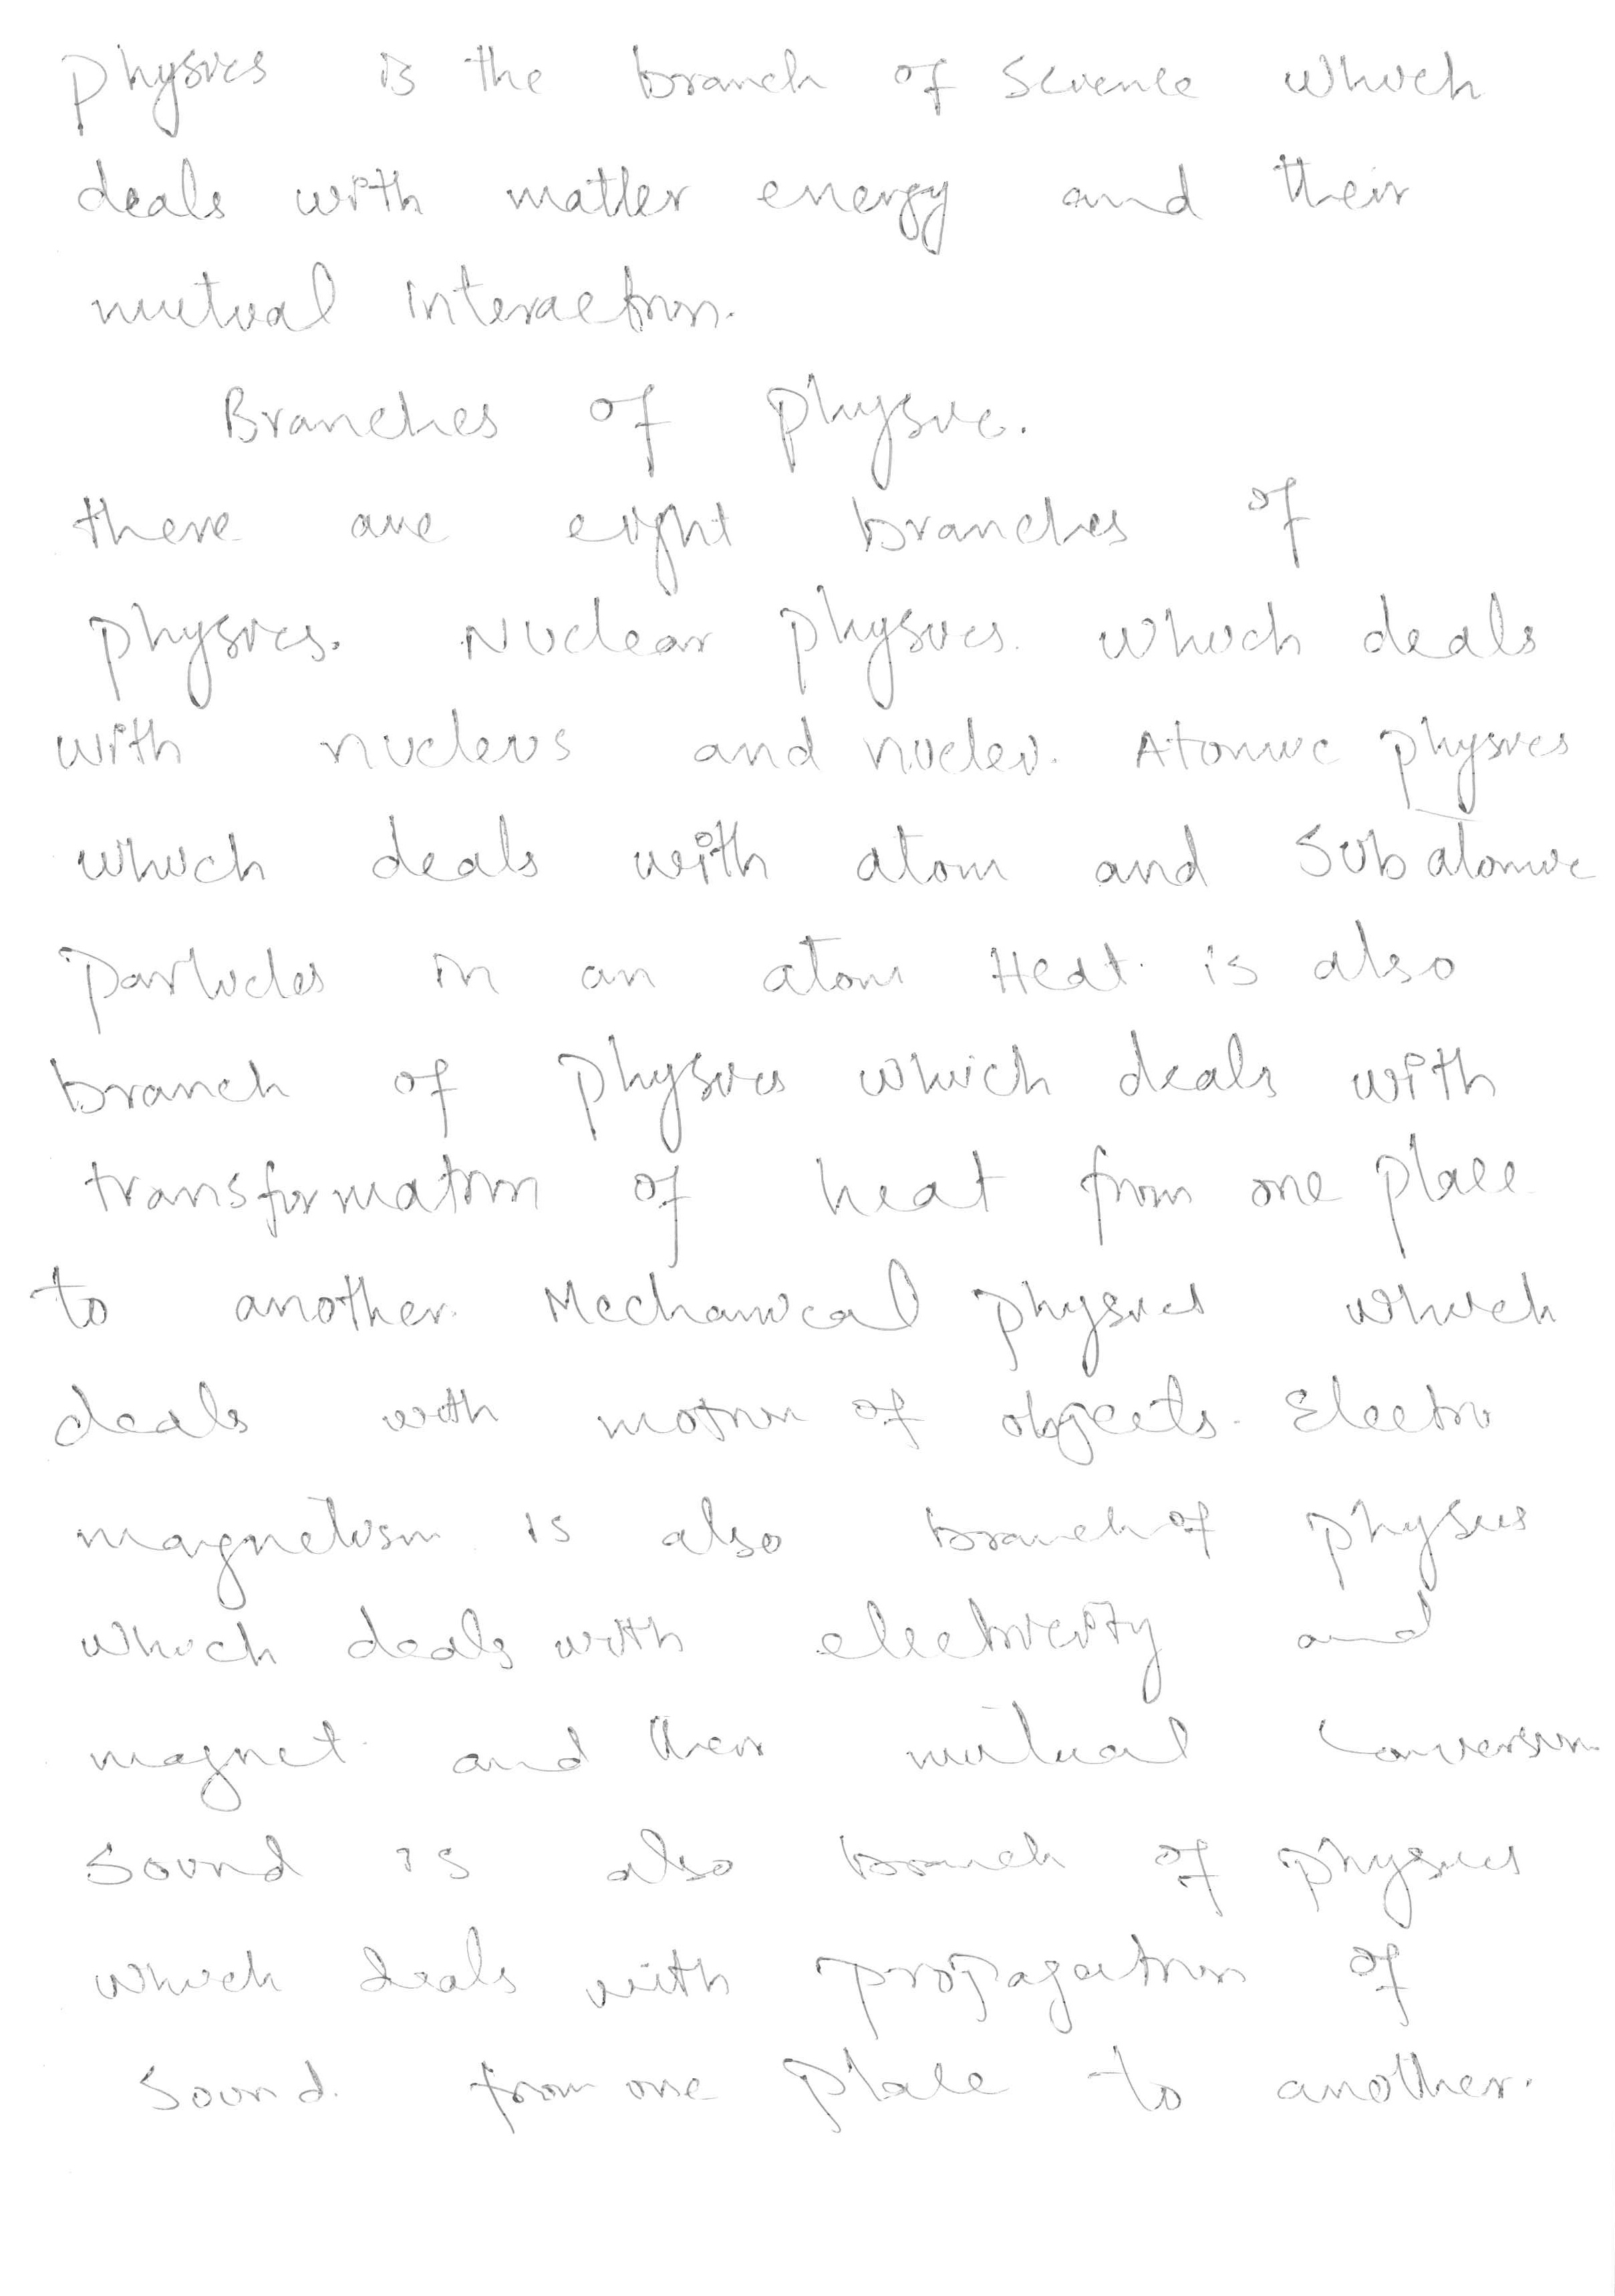 physics is the branch of science which
deals with matter energy and their
mutual interaction.
Branches of physic.
there are eight branches of
physics. Nuclear physics. which deals
with nucleus and nuclei. Atomic physics
which deals with atom and Subatomic
particles in an atom Heat. is also
branch of physics which deals with
transformation of heat from one place
to another. Mechanical physics which
deals with motion of objects. Electro
magnetism is also branch of physics
which deals with electricity and
magnet and their mutual conversion
Sound is also branch of physics
which deals with propagation of
Sound. from one place to another.